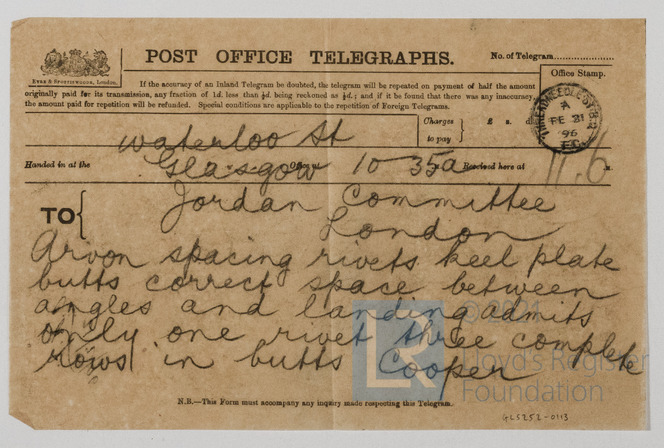 POST OFFICE TELEGRAPHS.
No. of Telegram
EYRE & SPOTTISWOODE, London.
If the accuracy of an Inland Telegram be doubted, the telegram will be repeated on payment of half the amount
originally paid for its transmission, any fraction of 1d. less than ½d. being reckoned as ½d.; and if it be found that there was any inaccuracy,
the amount paid for repetition will be refunded. Special conditions are applicable to the repetition of Foreign Telegrams.
Office Stamp.
THREADNEEDLE ST B.O
A
FE 21
96
E.C.
Charges
to pay
£ s. d.
Waterloo St
Handed in at the Glasgow Office at 10 35a Received here at 11.6
TO
Jordan Committee
London
Arvon spacing rivets keel plate
butts correct space between
angles and landing admits
only one rivet three complete
rows in butts Cooper
N.B.—This Form must accompany any inquiry made respecting this Telegram.
© 2021
LR
Lloyd's Register
Foundation
GLS252-0113